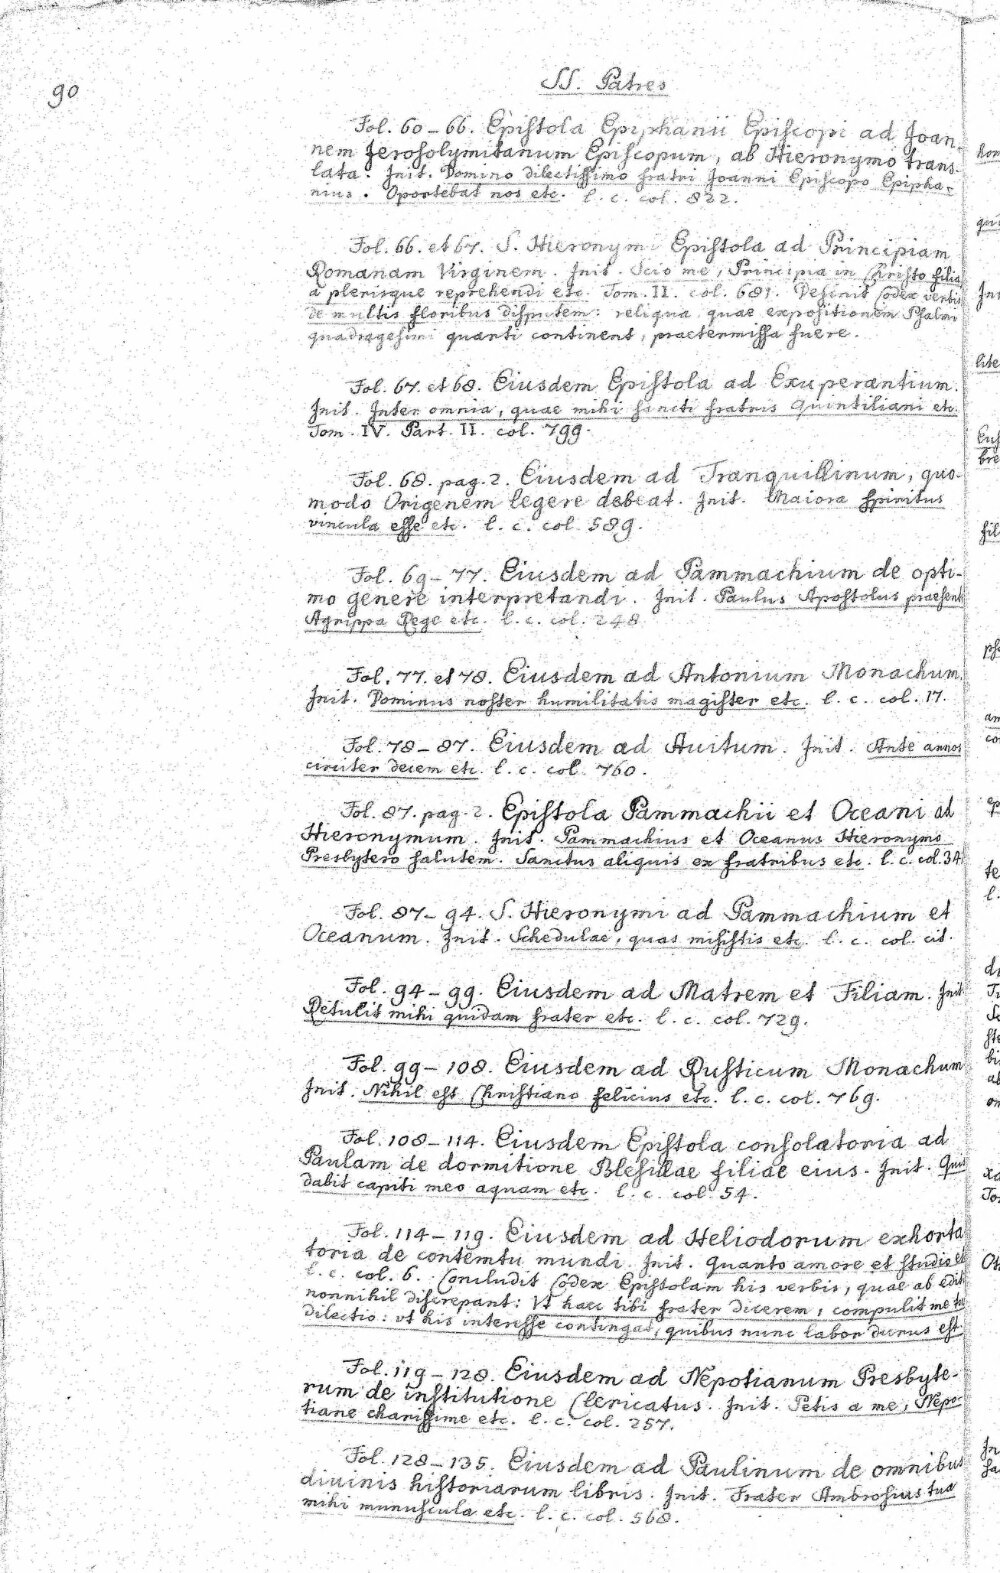 90
SS. Patres
Fol. 60–66. Epistola Epiphanii Episcopi ad Joan-
nem Jerosolymitanum Episcopum, ab Hieronymo trans-
lata. Init. Domino dilectissimo fratri Joanni Episcopo Epipha-
nius. Oportebat nos etc. l. c. col. 822.
Fol. 66. et 67. S. Hieronymi Epistola ad Principiam
Romanam Virginem. Init. Scio me, Principia in Christo filia
a plerisque reprehendi etc. Tom. II. col. 681. Desinit Codex verbis
de multis floribus disputem: reliqua, quae expositionem Psalmi
quadragesimi quarti continent, praetermissa fuere.
Fol. 67. et 68. Eiusdem Epistola ad Exuperantium.
Init. Inter omnia, quae mihi sancti fratris Quintiliani etc.
Tom. IV. Part. II. col. 799.
Fol. 68. pag. 2. Eiusdem ad Tranquillinum, quo-
modo Origenem legere debeat. Init. Maiora spiritus
vincula esse etc. l. c. col. 589.
Fol. 69–77. Eiusdem ad Pammachium de opti-
mo genere interpretandi. Init. Paulus Apostolus praesente
Agrippa Rege etc. l. c. col. 248.
Fol. 77. et 78. Eiusdem ad Antonium Monachum.
Init. Dominus noster humilitatis magister etc. l. c. col. 17.
Fol. 78–87. Eiusdem ad Auitum. Init. Ante annos
circiter decem etc. l. c. col. 760.
Fol. 87. pag. 2. Epistola Pammachii et Oceani ad
Hieronymum. Init. Pammachius et Oceanus Hieronymo
Presbytero salutem. Sanctus aliquis ex fratribus etc. l. c. col. 34
Fol. 87–94. S. Hieronymi ad Pammachium et
Oceanum. Init. Schedulae, quas misistis etc. l. c. col. cit.
Fol. 94–99. Eiusdem ad Matrem et Filiam. Init
Retulit mihi quidam frater etc. l. c. col. 729.
Fol. 99–108. Eiusdem ad Rusticum Monachum
Init. Nihil est Christiano felicius etc. l. c. col. 769.
Fol. 108–114. Eiusdem Epistola consolatoria ad
Paulam de dormitione Blesillae filiae eius. Init. Quis
dabit capiti meo aquam etc. l. c. col. 54.
Fol. 114–119. Eiusdem ad Heliodorum exhorta
toria de contemtu mundi. Init. Quanto amore et studio et
l. c. col. 6. Concludit Codex Epistolam his verbis, quae ab edit
nonnihil discrepant: Vt haec tibi frater dicerem, compulit me tu
dilectio: vt his interesse contingat, quibus nunc labor durus est
Fol. 119–128. Eiusdem ad Nepotianum Presbyte-
rum de institutione Clericatus. Init. Petis a me, Nepo-
tiane charissime etc. l. c. col. 257.
Fol. 128–135. Eiusdem ad Paulinum de omnibus
diuinis historiarum libris. Init. Frater Ambrosius tua
mihi munuscula etc. l. c. col. 568.